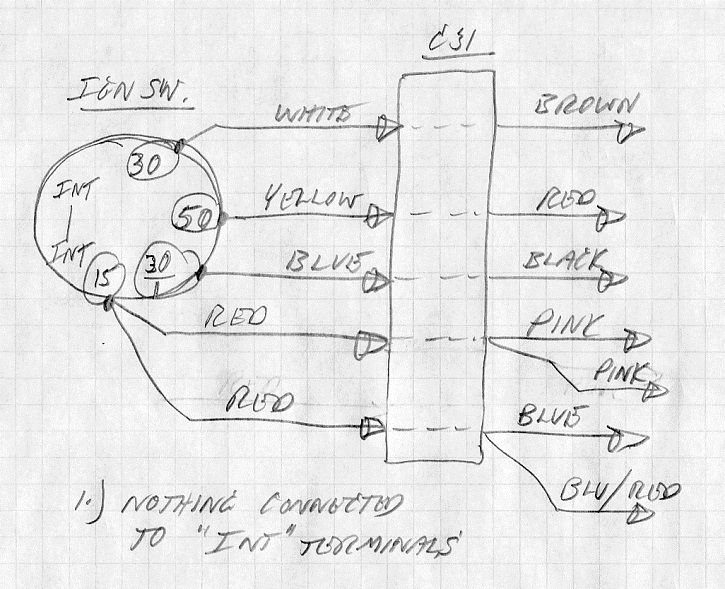 C31
IGN SW.
WHITE
BROWN
30
INT
50
YELLOW
RED
INT
15
30
1
BLUE
BLACK
RED
PINK
PINK
RED
BLUE
BLU/RED
1.) NOTHING CONNECTED
TO "INT" TERMINALS